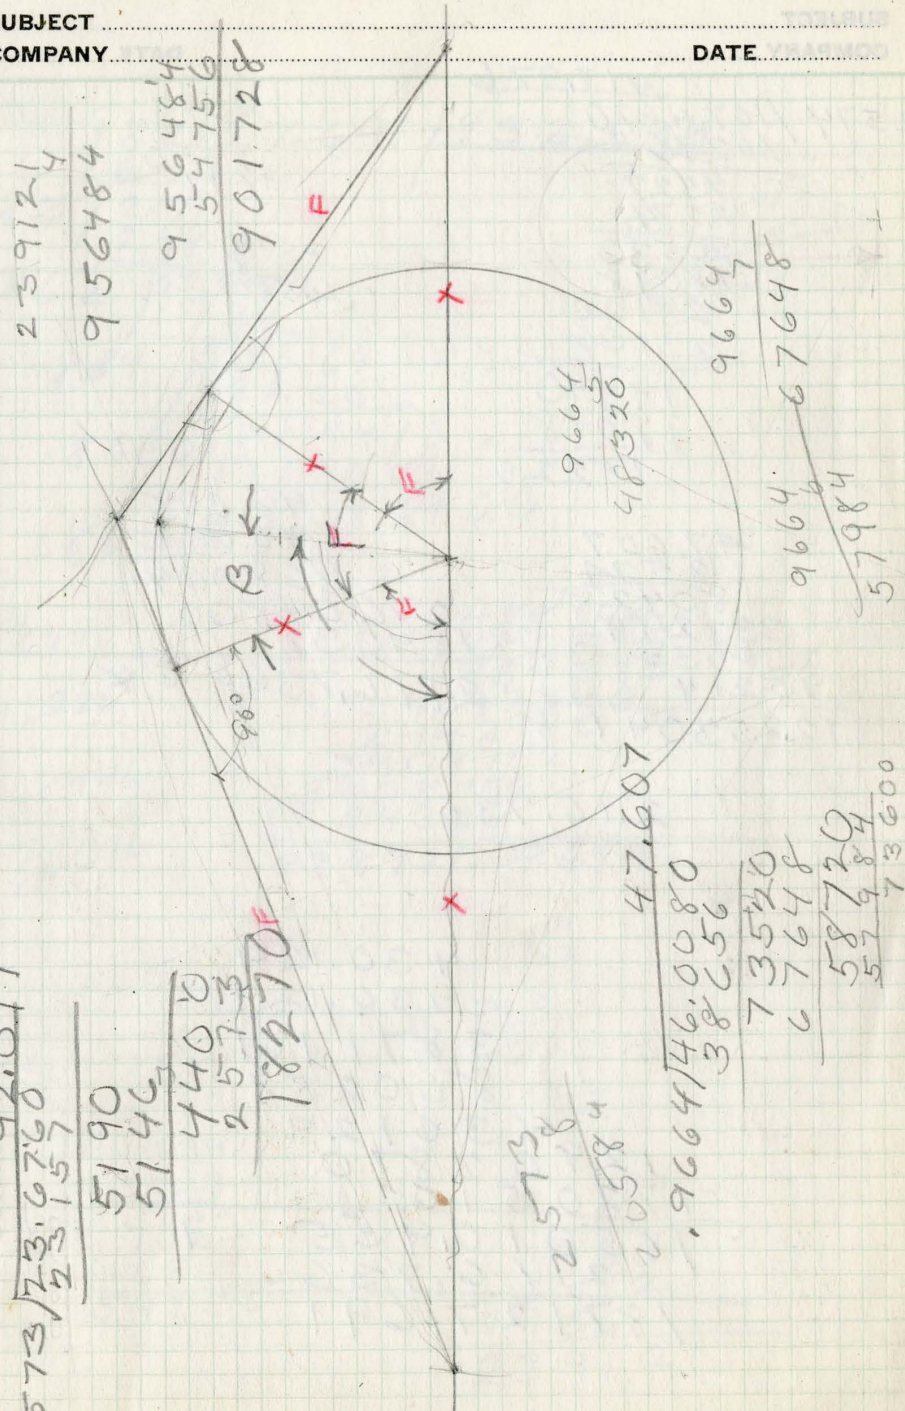 SUBJECT
COMPANY DATE
239121
4
956484
956484
54756
901728
F
X
X
F
F
F
B
X
90°
F
X
9664
5
48320
9664
7
67648
9664
6
57984
47.607
.9664/46.0080
38656
73520
67648
58720
57984
73600
92.011
573/23.6760
23157
5190
5146
4400
2573
18270
2573
8
20584